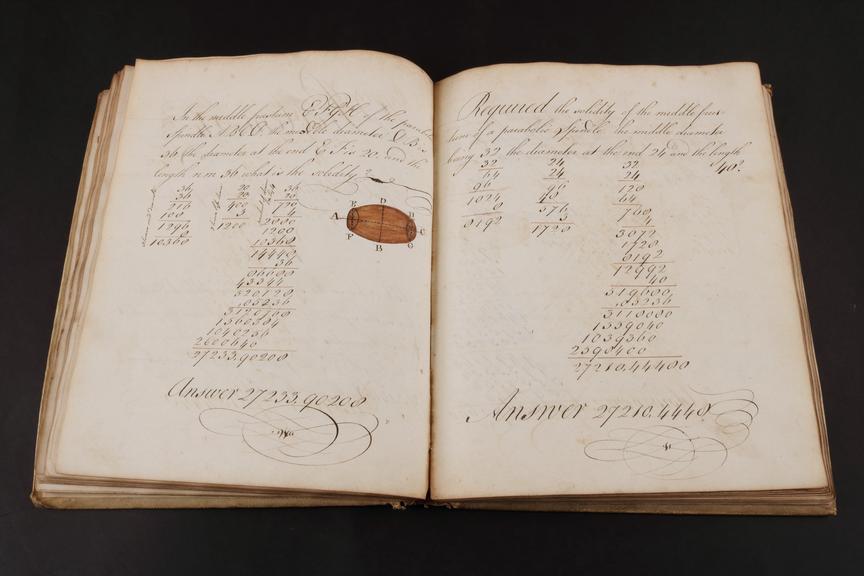 In the middle frustum EFGH of the parabolic
Spindle ABCD the middle diameter DB is
36 the diameter at the end EF is 20, and the
length nm 36 what is the solidity?
36
36
216
108
1296
8
10368
20
20
400
3
1200
36
20
720
4
2880
1200
10368
14448
36
86688
43344
520128
.05236
3120768
1560384
1040256
2600640
27233.90208
A
E
D
B
F
G
C
Answer 27233.90208
Required the solidity of the middle frus-
tum of a parabolic Spindle the middle diameter
being 32 the diameter at the end 24 and the length
40?
32
64
96
1024
8
8192
24
24
96
48
576
3
1728
32
24
128
64
768
4
3072
1728
8192
12992
40
519680
.05236
3118080
1559040
1039360
2598400
27210.44480
Answer 27210.4448